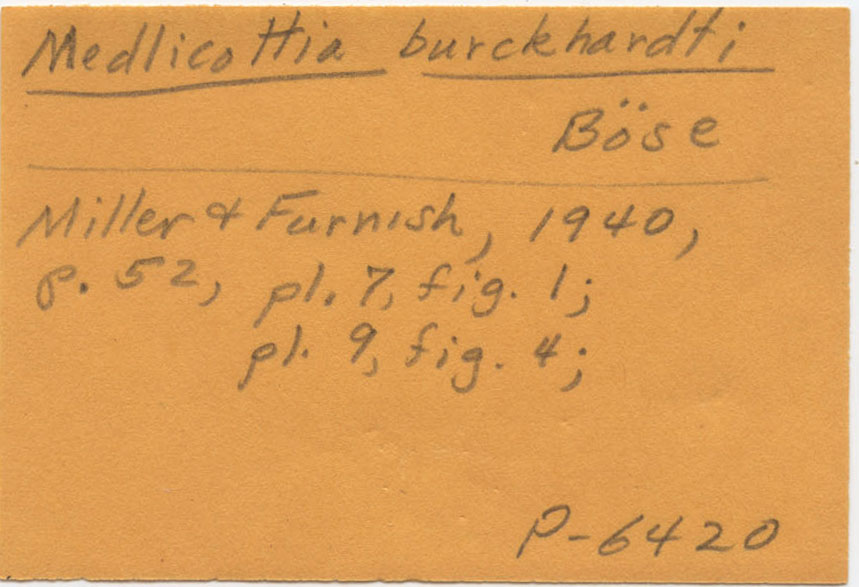 Medlicottia burckhardti
Böse
Miller & Furnish, 1940,
p. 52, pl. 7, fig. 1;
pl. 9, fig. 4;
P-6420